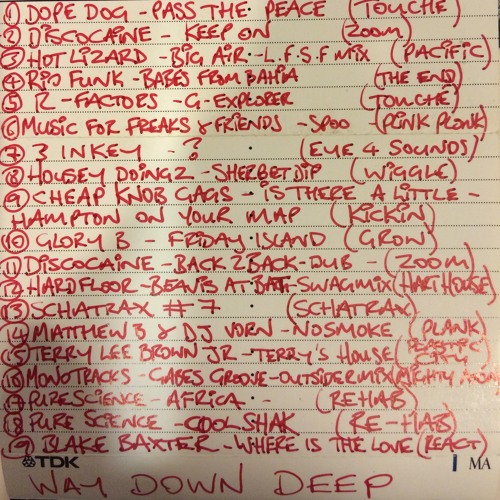 ① DOPE DOG - PASS THE PEACE (TOUCHE)
② DISCOCAINE - KEEP ON (ZOOM)
③ HOT LIZARD - BIG AIR - L.F.S.F MIX (PACIFIC)
④ RIO FUNK - BABES FROM BAHIA (THE END)
⑤ R-FACTORS - G-EXPLORER (TOUCHE)
⑥ MUSIC FOR FREAKS & FRIENDS - SPOO - (PLINK PLONK)
⑦ 3 IN KEY - ? (EYE 4 SOUNDS)
⑧ HOUSEY DOINGZ - SHERBET DIP (WIGGLE)
⑨ CHEAP KNOB GAGS - IS THERE A LITTLE -
HAMPTON ON YOUR MAP (KICKIN)
⑩ GLORY B - FRIDAY ISLAND (GROW)
⑪ DISCOCAINE - BACK 2 BACK - DUB - (ZOOM)
⑫ HARDFLOOR - BEAVIS AT BAT - SWAGMIX (HARTHOUSE)
⑬ SCHATRAX # 7 (SCHATRAX)
⑭ MATTHEW B & DJ VORN - NO SMOKE (PLANK)
⑮ TERRY LEE BROWN JR - TERRY'S HOUSE (PLASTIC CITY
⑯ MONOTRACKS - GABES GROOVE - OUTSIDER MIX (MIGHTY
⑰ PURE SCIENCE - AFRICA - (REHAB)
⑱ PURE SCIENCE - COOL SHAK (RE-HAB)
⑲ BLAKE BAXTER - WHERE IS THE LOVE (REACT)
TDK I MA
WAY DOWN DEEP